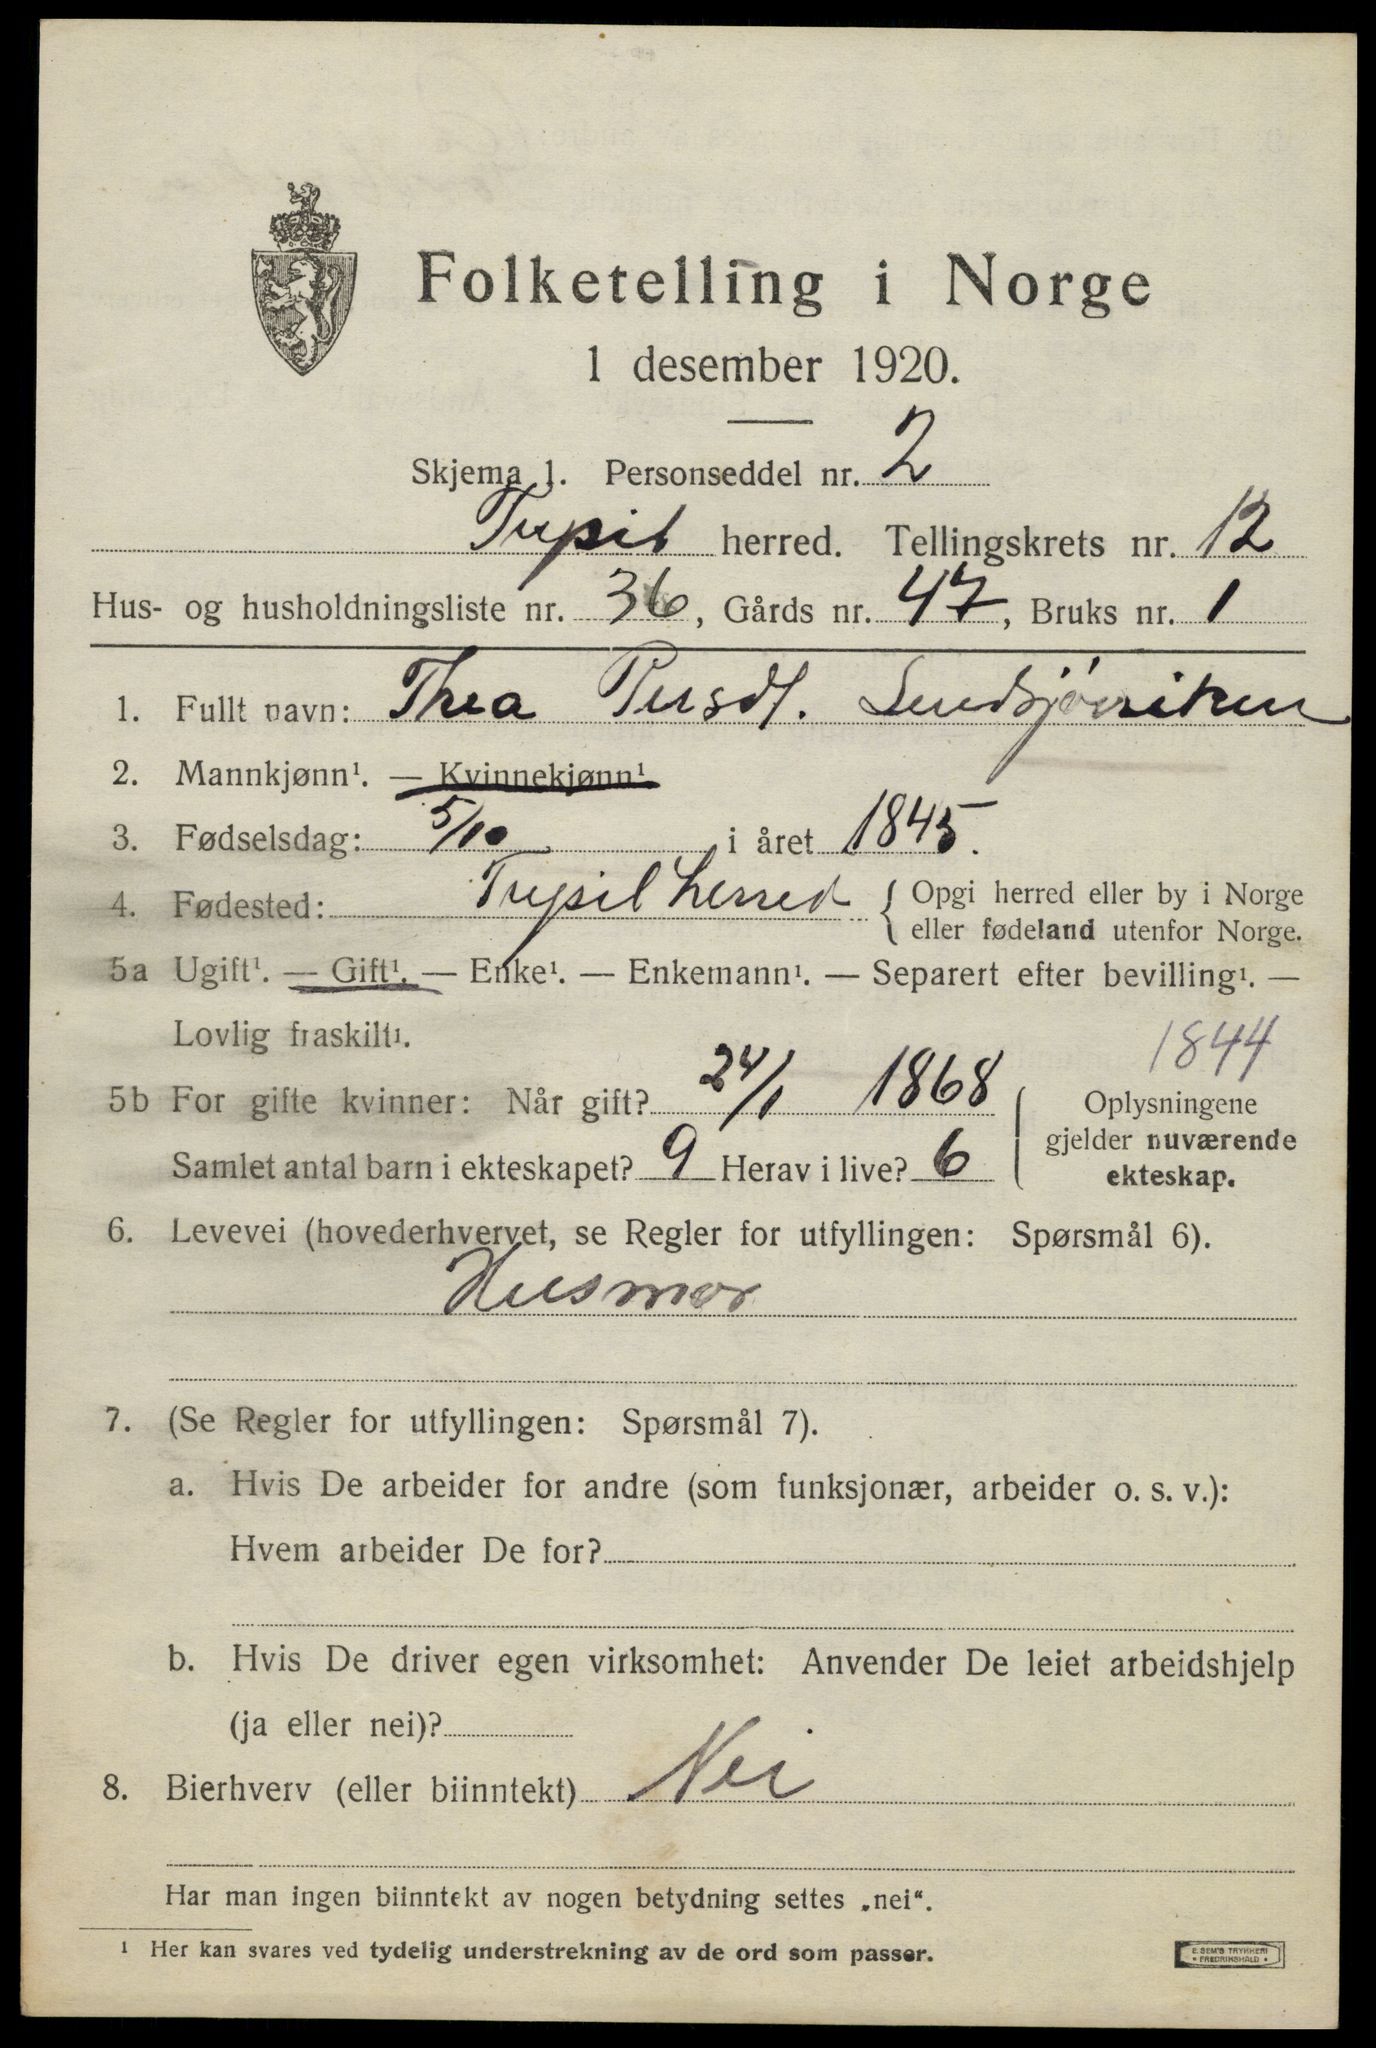 Folketelling i Norge
1 desember 1920.
Skjema 1. Personseddel nr. 2
Trysil herred. Tellingskrets nr. 12
Hus- og husholdningsliste nr. 36, Gårds nr. 47, Bruks nr. 1
1. Fullt navn: Thea Persdt.
2. Mannkjønn¹. — Kvinnekjønn¹
3. Fødselsdag: 5/10 i året 1845.
4. Fødested: Trysil herred { Opgi herred eller by i Norge
eller fødeland utenfor Norge.
5a Ugift¹. — Gift¹. — Enke¹. — Enkemann¹. — Separert efter bevilling¹. —
Lovlig fraskilt¹.
1844
5b For gifte kvinner: Når gift? 24/1 1868
Samlet antal barn i ekteskapet? 9 Herav i live? 6
Oplysningene
gjelder nuværende
ekteskap.
6. Levevei (hovederhvervet, se Regler for utfyllingen: Spørsmål 6).
Husmor
7. (Se Regler for utfyllingen: Spørsmål 7).
a. Hvis De arbeider for andre (som funksjonær, arbeider o. s. v.):
Hvem arbeider De for?
b. Hvis De driver egen virksomhet: Anvender De leiet arbeidshjelp
(ja eller nei)?
8. Bierhverv (eller biinntekt) Nei
Har man ingen biinntekt av nogen betydning settes „nei“.
¹ Her kan svares ved tydelig understrekning av de ord som passer.
E. SEM'S TRYKKERI
• FREDRIKSHALD •